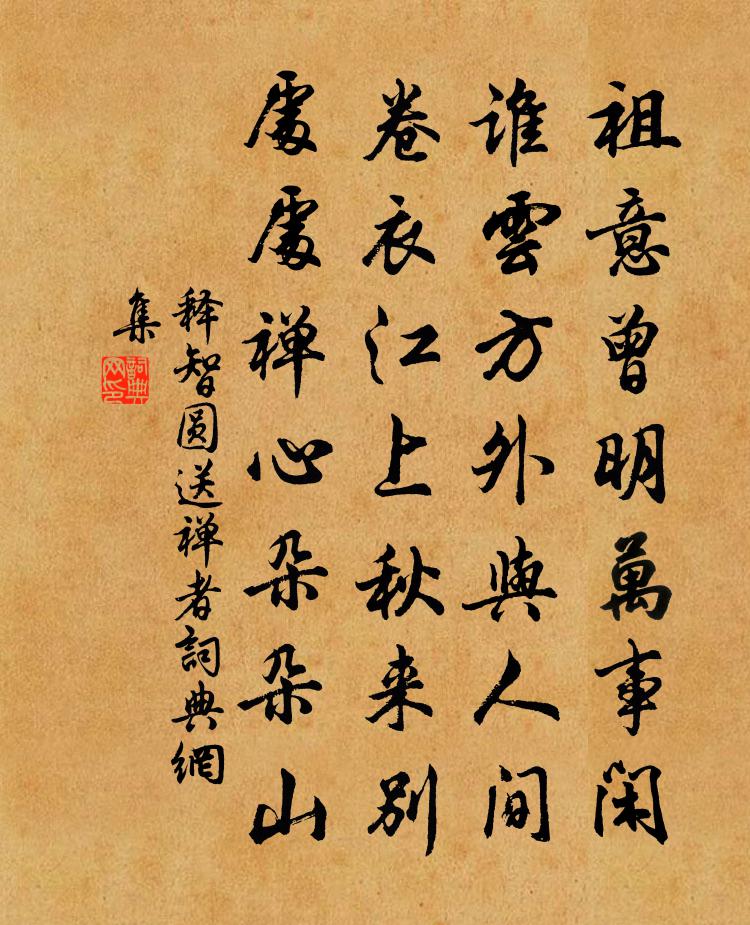 祖意曾明萬事閑
誰雲方外與人間
卷衣江上秋来別
處處禅心朵朵山
释智圆送禅者詞典網
集
詞典
网印